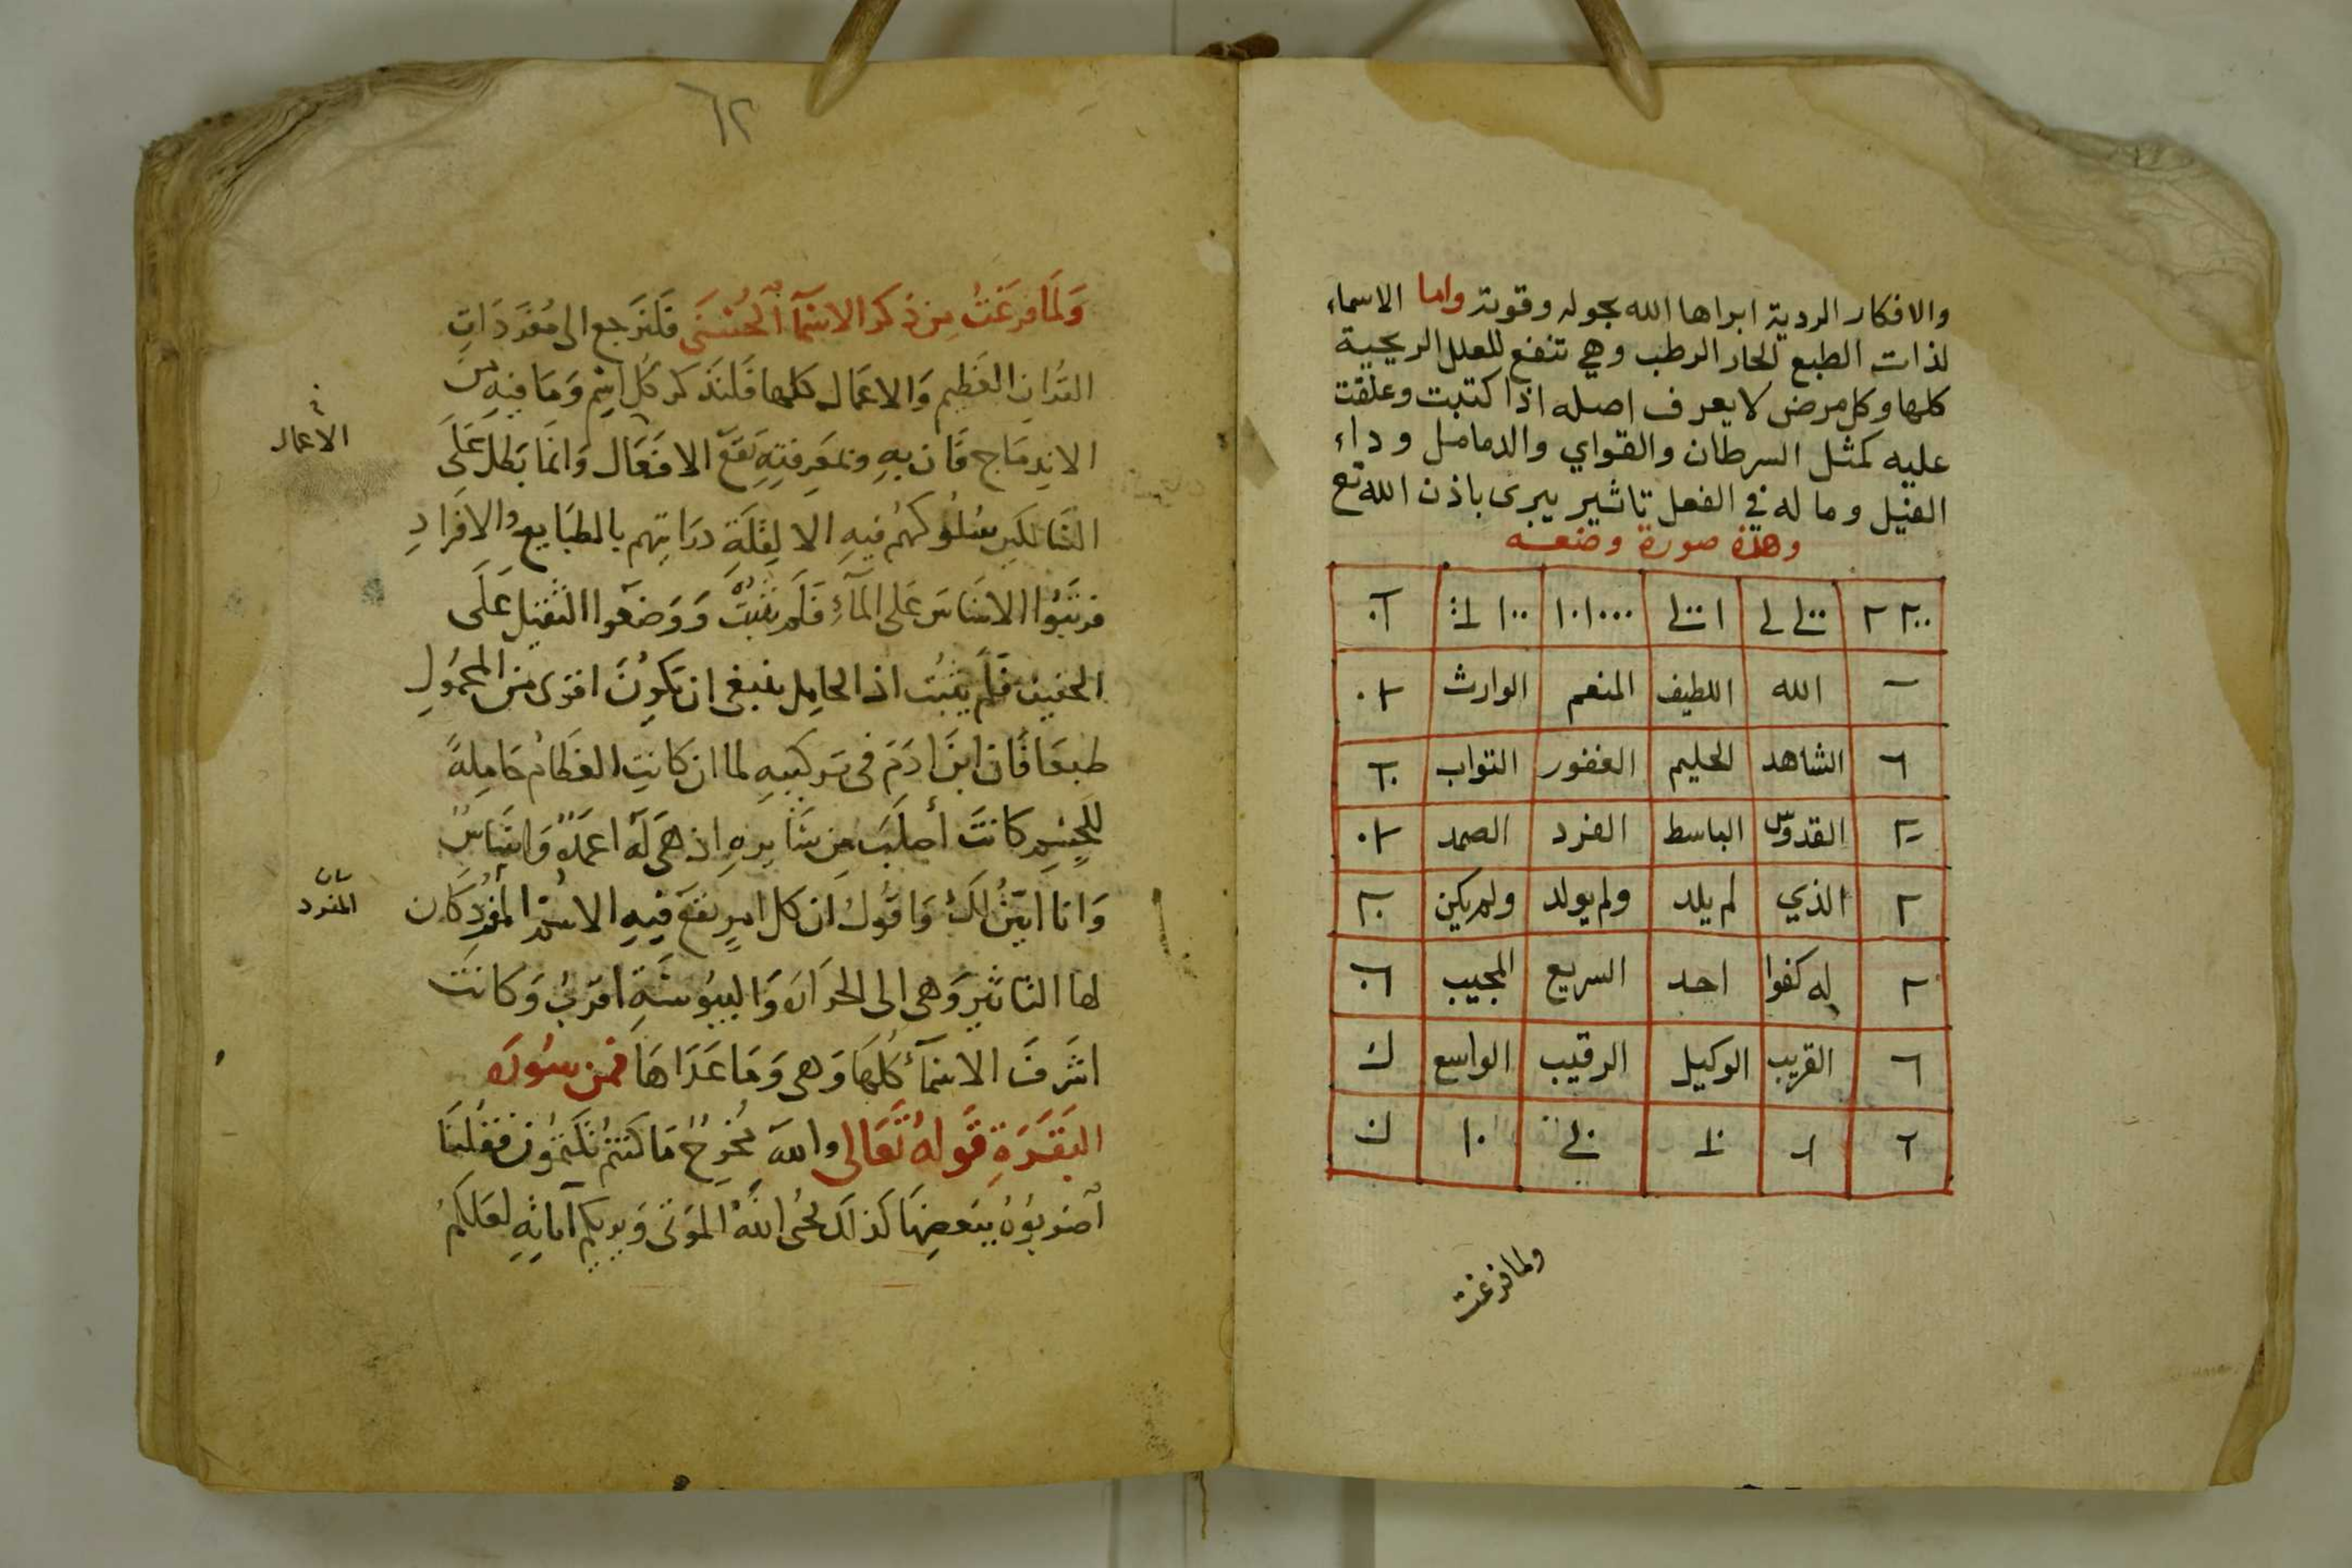 والافكار الردية ابراها الله بحوله وقوته واما الاسماء
لذات الطبع الحار الرطب وهي تنفع للعلل الريحية
كلها وكل مرض لا يعرف اصله اذا كتبت وعلقت
عليه كمثل السرطان والقواي والدماميل وداء
الفيل وما له في الفعل تاثير يبرى باذن الله تع
وهذه صورة وضعه
الله اللطيف المنعم الوارث
الشاهد الحليم الغفور التواب
القدوس الباسط الفرد الصمد
الذي لم يلد ولم يولد ولم يكن
له كفوا احد السريع المجيب
القريب الوكيل الرقيب الواسع
ولما فرغت
٦٢
وَلَمَا فرغتُ مِن ذكر الاسمآ الحُسْنَى فَلنَرجع الى مُفرَدَاتِ
القران العَظِيم وَالاعمال كلها فَلنَذكر كل اسم وَمَا فيهِ مِن
الاندِمَاج فَان بهِ وبمَعرِفتِهِ تَقعُ الافعَال وَانمَا بَطلَ عَلَى
الاعمال
السَّالكين سُلُوكهُم فيهِ الا لِقلَةِ درَايتِهم بالطبَايع والافرَادِ
فرتبُوا الاسَاسَ عَلى المآءِ فَلَم يَثبتَّ وَوَضعوا الثقيل عَلَى
الخفيف فَلَم يَثبُت اذ الحامِل ينبغى ان يَكونَ اقوَى من المحمُولِ
طبعَا فَان ابنَ ادَمَ فى تركيبهِ لما ان كانتِ العظامُ حَامِلةً
للجسم كانتَ أصلَبَ مِن سَايره اذ هىَ لَه اعمدَةٌ وَاسَاسٌ
وَانا ابيّنُ لكَ وَاقولُ ان كل امرٍ يقعَ فيهِ الاسم المفرد كان
بيان المفرد
لها التاثير وَهى الى الحرَارَه وَاليبُوسَةِ اقربُ وَكانَت
اشرَفَ الاسمآءِ كلهَا وَهى وَمَا عَدَاهَا فمن سُورَه
البَقَرَةِ قَولهُ تَعَالى والله مُخرِجٌ مَا كنتم تكتمُون فقلنَا
اضربُوهُ ببَعضِهَا كذالك يُحى اللهُ المَوتَى وَيريكم آياتهِ لعَلكمُ